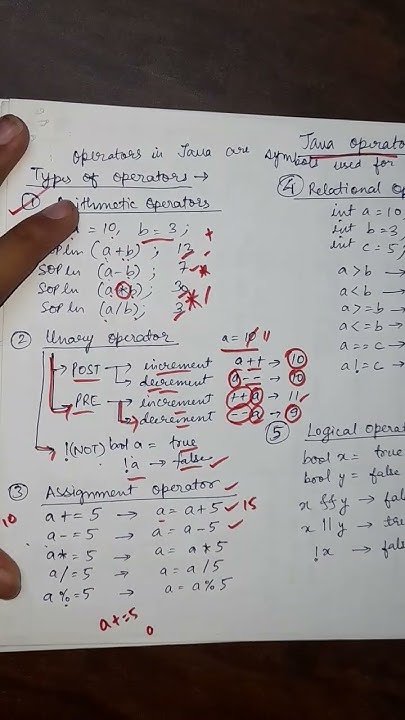 Java operato
operators in Java are symbols used for
Types of operators →
① Arithmetic operators
a = 10, b = 3;
SOP ln (a+b) ; 13
SOP ln (a-b) ; 7
SOP ln (a*b) ; 30
SOP ln (a/b) ; 3
② Unary operator a = 10 11
POST → increment a++ → 10
→ decrement a-- → 10
PRE → increment ++a → 11
→ decrement --a → 9
!(NOT) bool a = true
!a → false
③ Assignment operator
10 a += 5 → a = a+5 15
a -= 5 → a = a-5
a* = 5 → a = a*5
a/ = 5 → a = a/5
a% = 5 → a = a%5
a+=5
0
④ Relational O
int a = 10,
int b = 3;
int c = 5;
a > b →
a < b →
a >= b →
a <= b →
a == c →
a != c →
⑤ Logical operat
bool x = true
bool y = false
x && y → fal
x || y → tru
!x → fal